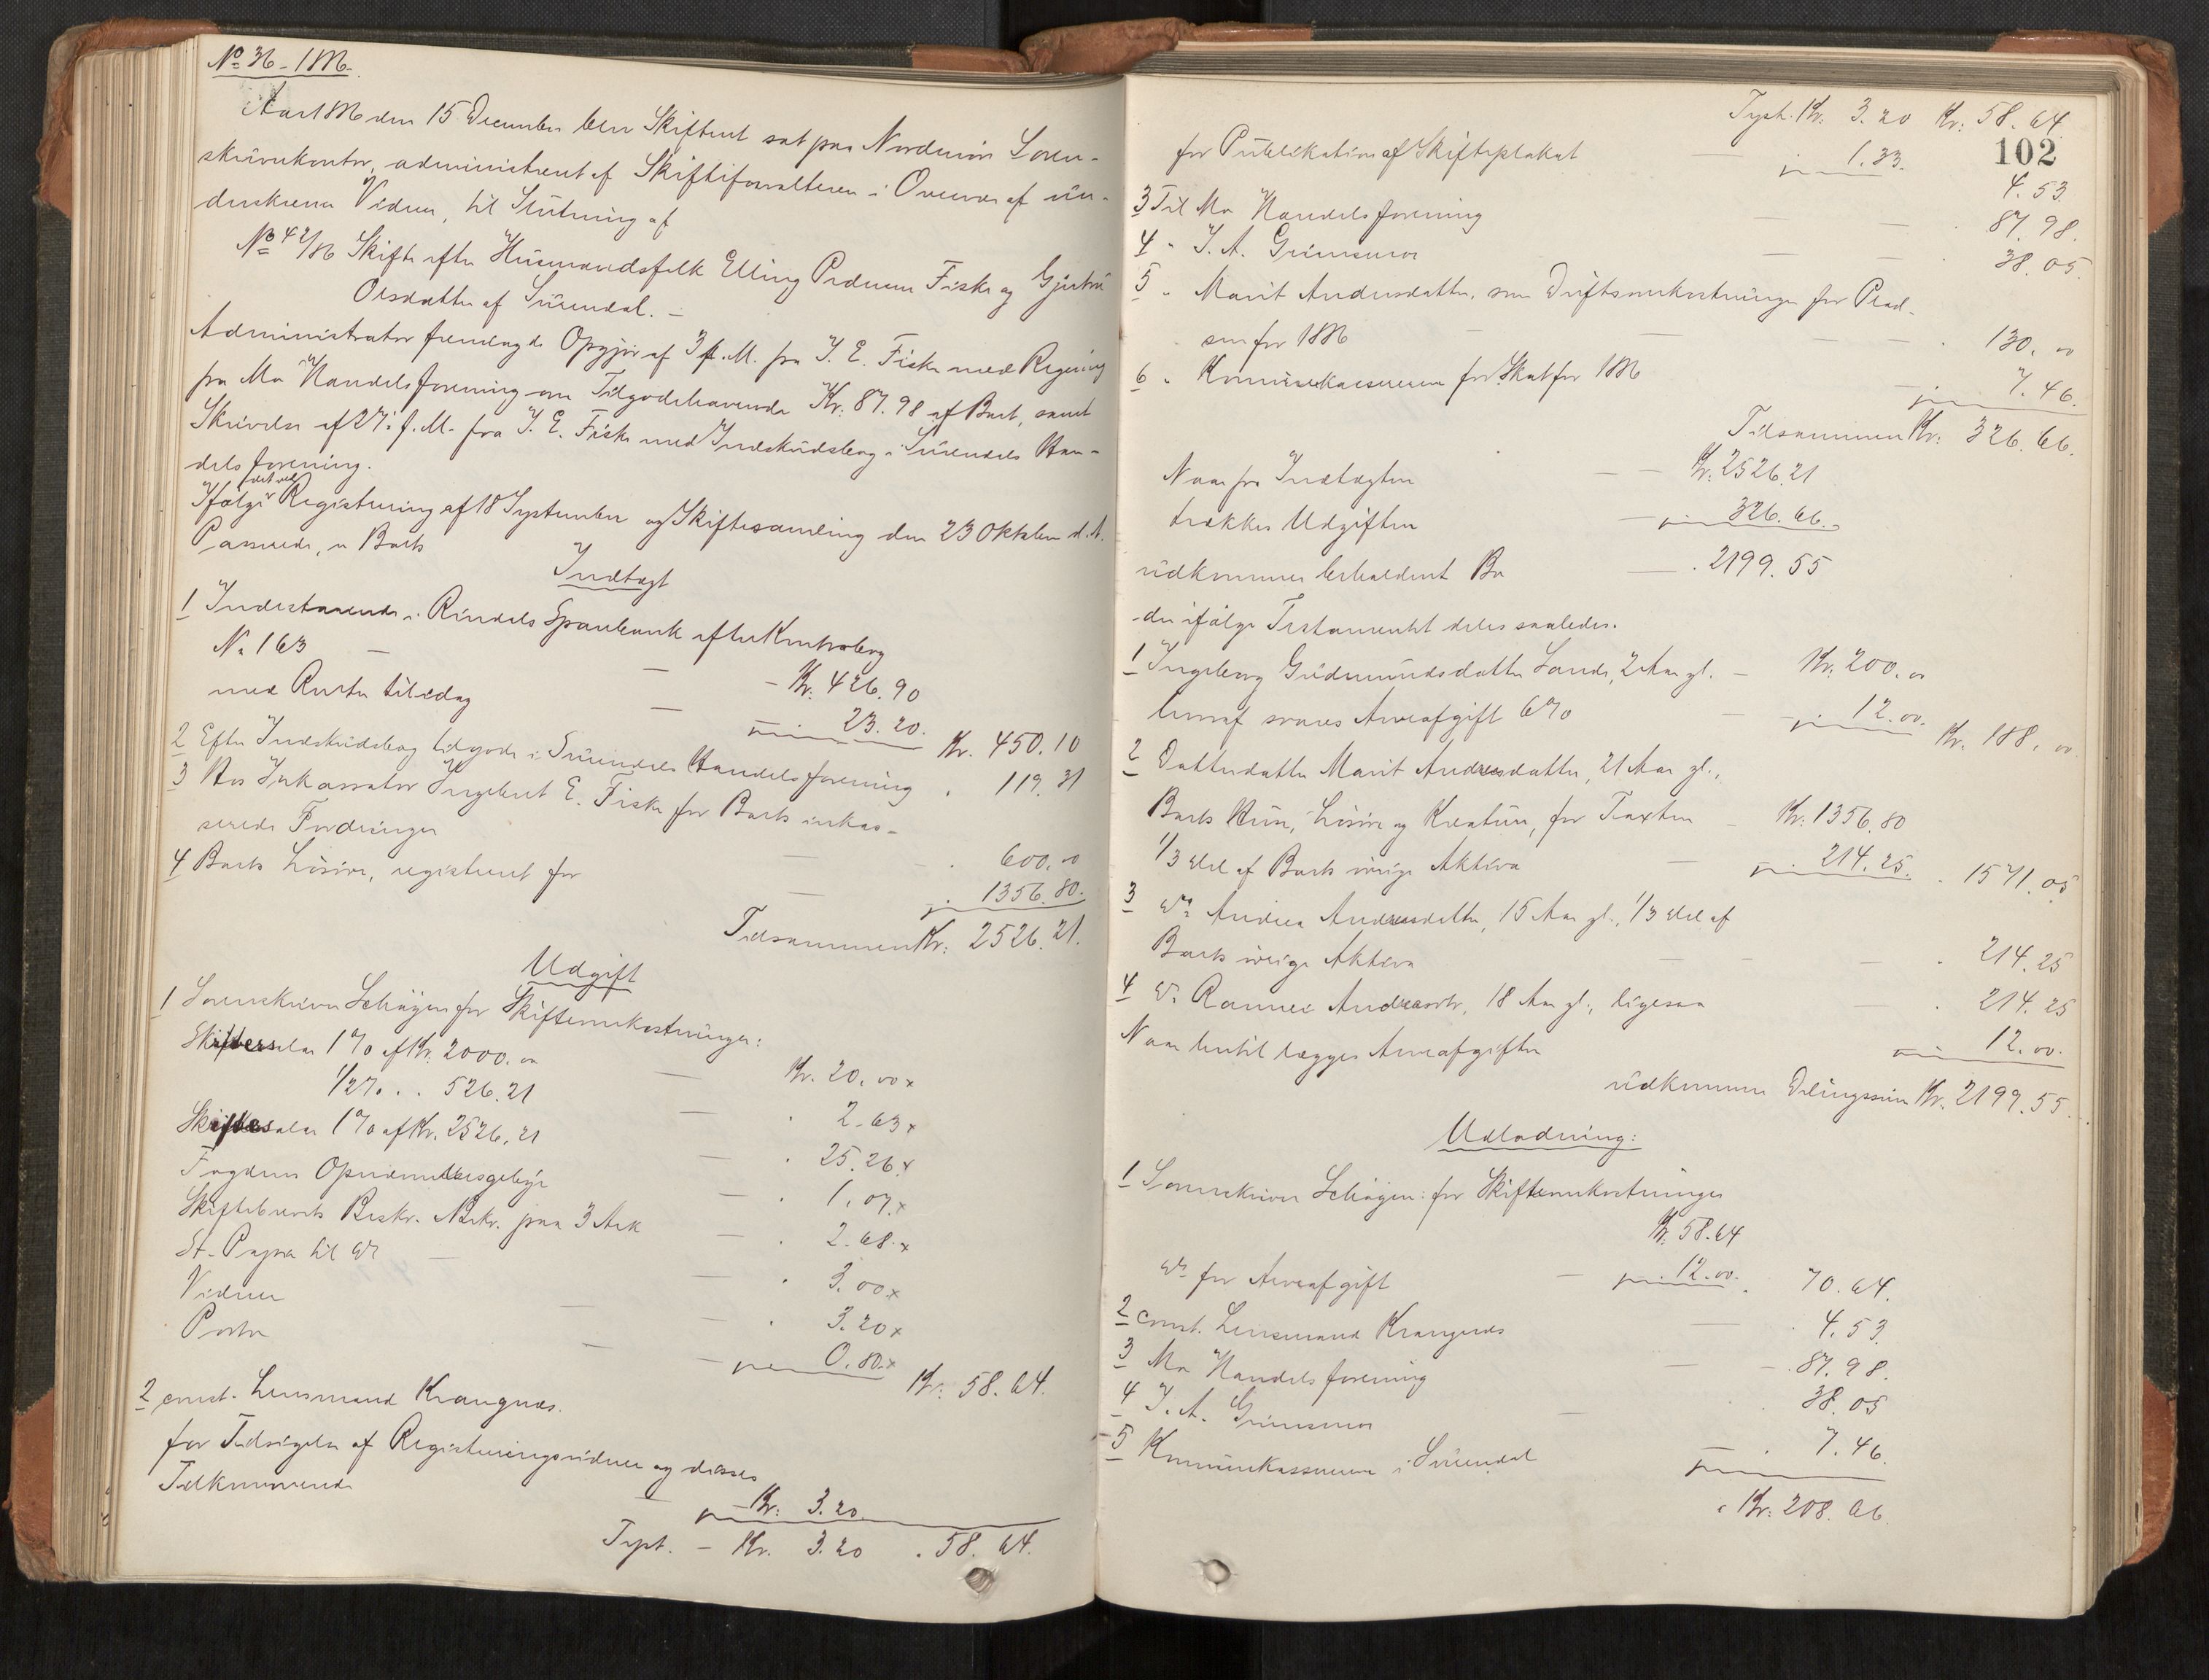 No 36 - 1886.
Aar 1886 den 15 December blev Skifteret sat paa Nordmøre Soren-
skriverkontor, administreret af Skifteforvalteren i Overvær af un-
derskrevne Vidner, til Slutning af
No 42/86 Skifte efter Husmandsfolk Elling Pedersen Fiske og Gjertru
Olsdatter af Surendal. -
Administrator fremlagde Opgjør af 3 f. M. fra I. E. Fiske med Regning
fra Mo Handelsforening om Tilgodehavende Kr: 87.98 af Boet, samt
Skrivelse af 27. f. M. fra I. E. Fiske med Indskudsbog i Surendals Han-
delsforening.
Ifølge det ved Registrering af 18 September og Skiftesamling den 23 Oktober d. A.
Passerede, er Boets
Indtægt
1 Indestaaende i Rindals Sparebank efter Kontrabog
No 163 — — Kr. 426.90
med Renter til idag — 23.20. Kr. 450.10
2 Efter Indskudsbog tilgode i Surendals Handelsforening . 119.31
3 Hos Inkassator Ingebret E. Fiske for Boets inkas-
serede Fordringer — . 600.00
4 Boets Løsøre, registreret for — . 1356.80.
Tilsammen Kr: 2526.21.
Udgift
1 Sorenskriver Schøyen for Skifteomkostninger:
Skiftersalær 1% af Kr. 2000.00 — Kr. 20.00 x
1/2% . . 526.21 — . 2.63 x
Skiftesalær 1% af Kr. 2526.21 — . 25.26 x
Fogdens Opnævnelsesgebyr — . 1.07. x
Skiftebrevets Beskr. paa 3 Ark — . 2.68. x
St. Papir til do — — . 3.00 x
Vidner — . 3.20 x
Porto — — 0.80. x Kr: 58.64.
2 const. Lensmand Krangnæs.
for Tilsigelse af Registreringsvidner og disses
Tilkommende — Kr: 3.20
Trpt. - Kr. 3.20 . 58.64.
Trpt. Kr: 3.20 Kr: 58.64.
102
for Publikation af Skifteplakat — 1.33. 4.53
3 Til Mo Handelsforening — — . 87.98.
4 " I. A. Grimsmo — — 38.05.
5 " Marit Andersdatter, som Driftsomkostninger for Plad-
sen for 1886 — — — . 130.00
6 " Kommunekassereren for Skat for 1886 — 7.46.
Tilsammen Kr: 326.66.
Naar fra Indtægten — — Kr: 2526.21
trækkes Udgiften — 326.66.
udkommer beholdent Bo — . 2199.55
der ifølge Testamentet deles saaledes.
1 Ingeborg Gudmundsdatter Lande, 2 Aar gl. — Kr: 200.00
hvoraf svares Arveafgift 6% — 12.00. Kr. 188.00
2 Datterdatter Marit Andreasdatter, 21 Aar gl.,
Boets Huse, Løsøre og Kreature, for Taxten — Kr: 1356.80
1/3 Del af Boets øvrige Aktiva — 214.25. . 1571.05
3 do Andrea Andreasdatter, 15 Aar gl., 1/3 Del af
Boets øvrige Aktiva — — — . 214.25
4 do Rannei Andreasdtr, 18 Aar gl., ligesaa — . 214.25
Naar hertil lægges Arveafgiften 12.00.
udkommer Delingssum Kr. 2199.55.
Udlodning:
1 Sorenskriver Schøyen: for Skifteomkostninger
Kr. 58.64
do for Arveafgift — 12.00. . 70.64.
2 const. Lensmand Krangnæs — . 4.53.
3 Mo Handelsforening — — . 87.98.
4 I. A. Grimsmo — . 38.05
5 Kommunekassereren i Surendal — . 7.46.
Kr: 208.66.